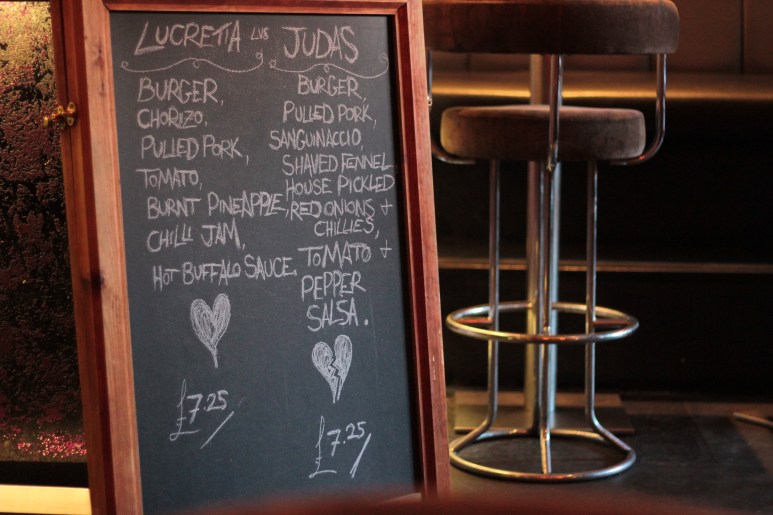 LUCRETIA LVS JUDAS
BURGER,
CHORIZO,
PULLED PORK,
TOMATO,
BURNT PINEAPPLE,
CHILLI JAM,
HOT BUFFALO SAUCE,
£7.25
BURGER,
PULLED PORK,
SANGUINACCIO,
SHAVED FENNEL
HOUSE PICKLED
RED ONIONS +
CHILLIES,
TOMATO +
PEPPER
SALSA.
£7.25